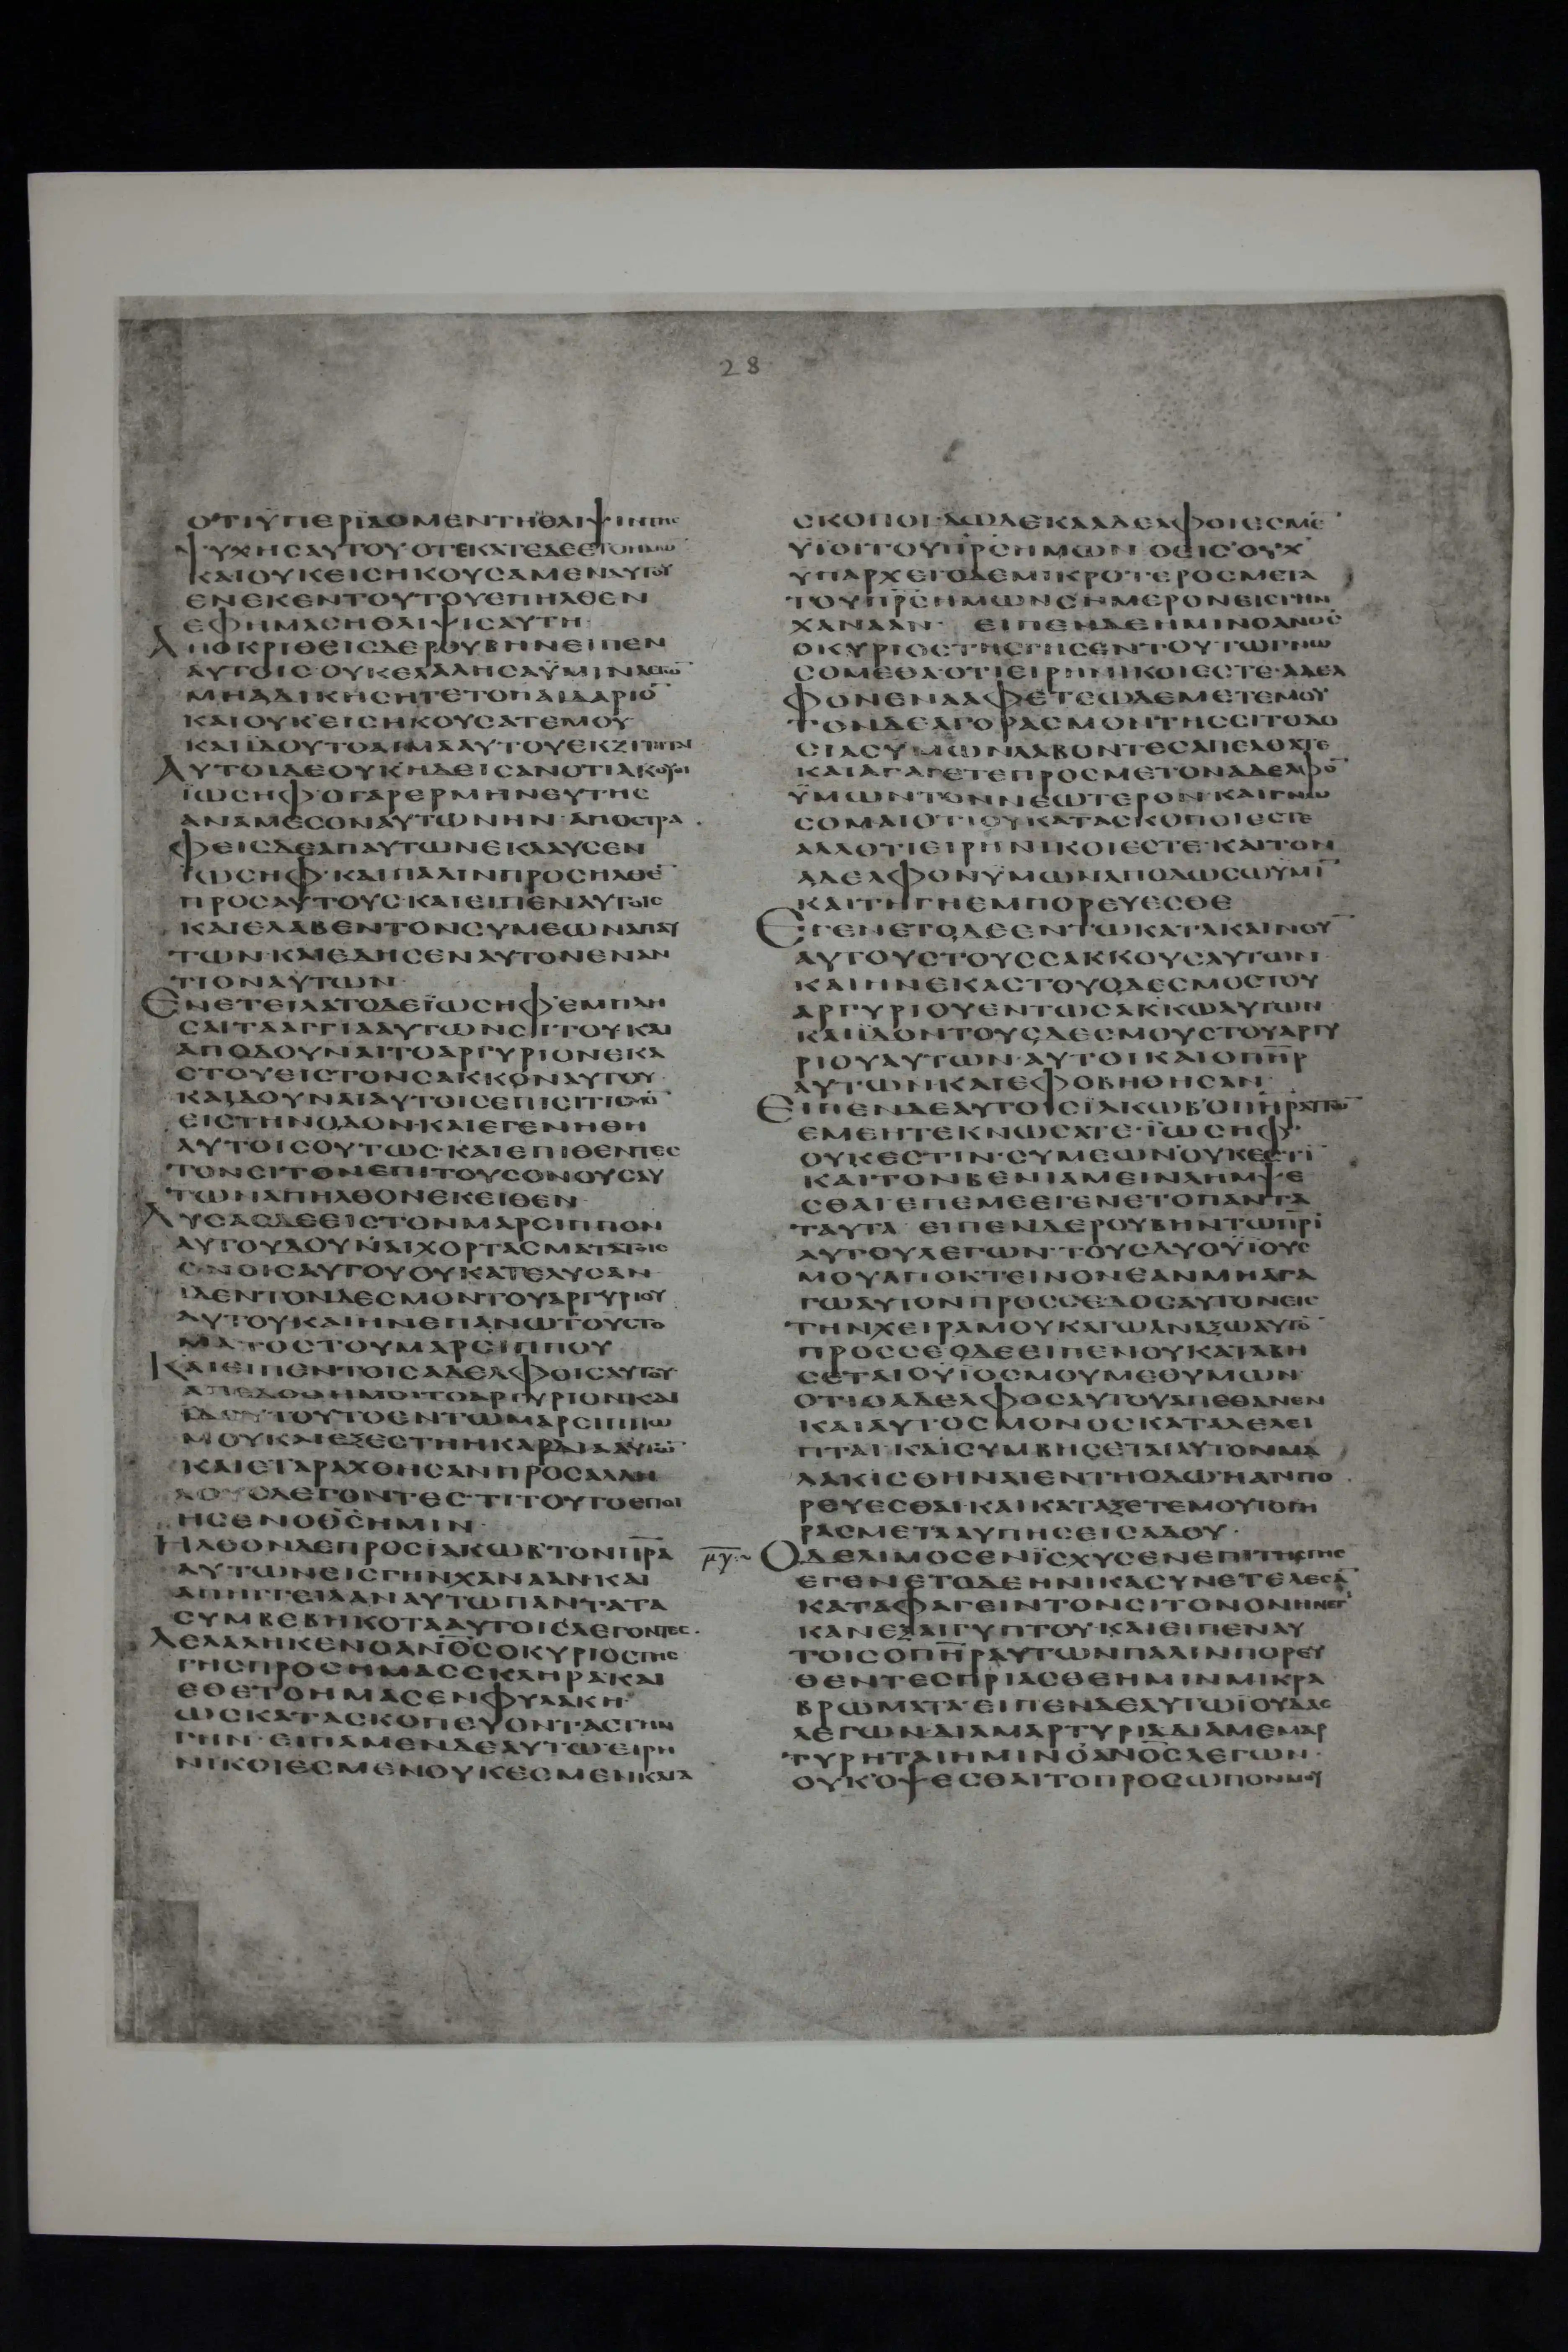 28
ΟΤΙΫΠΕΡΙΔΟΜΕΝΤΗΘΛΙΨΙΝΤΗΣ
ΨΥΧΗϹΑΥΤΟΥ·ΟΤΕΚΑΤΕΔΕΕΤΟΗΜΩ̅
ΚΑΙΟΥΚΕΙϹΗΚΟΥϹΑΜΕΝΑΥΤΟΥ
ΕΝΕΚΕΝΤΟΥΤΟΥΕΠΗΛΘΕΝ
ΕΦΗΜΑϹΗΘΛΙΨΙϹΑΥΤΗ·
ΑΠΟΚΡΙΘΕΙϹΔΕΡΟΥΒΗΝΕΙΠΕΝ
ΑΥΤΟΙϹ·ΟΥΚΕΛΑΛΗϹΑΫΜΙΝΛΕΓΩ̅
ΜΗΑΔΙΚΗϹΗΤΕΤΟΠΑΙΔΑΡΙΟ̅
ΚΑΙΟΥΚΕΙϹΗΚΟΥϹΑΤΕΜΟΥ·
ΚΑΙΪΔΟΥΤΟΑΙΜΑΑΥΤΟΥΕΚΖΙΤΕΙΤΑΙ
ΑΥΤΟΙΔΕΟΥΚΗΔΕΙϹΑΝΟΤΙΑΚΟΥΕΙ
ΪΩϹΗΦ·ΟΓΑΡΕΡΜΗΝΕΥΤΗϹ
ΑΝΑΜΕϹΟΝΑΥΤΩΝΗΝ·ΑΠΟϹΤΡΑ
ΦΕΙϹΔΕΑΠΑΥΤΩΝΕΚΛΑΥϹΕΝ
ΪΩϹΗΦ·ΚΑΙΠΑΛΙΝΠΡΟϹΗΛΘΕ̅
ΠΡΟϹΑΥΤΟΥϹ·ΚΑΙΕΙΠΕΝΑΥΤΟΙϹ
ΚΑΙΕΛΑΒΕΝΤΟΝϹΥΜΕΩΝΑΠΑΥ
ΤΩΝ·ΚΑΙΕΔΗϹΕΝΑΥΤΟΝΕΝΑΝ
ΤΙΟΝΑΥΤΩΝ·
ΕΝΕΤΕΙΛΑΤΟΔΕΪΩϹΗΦ·ΕΜΠΛΗ
ϹΑΙΤΑΑΓΓΙΑΑΥΤΩΝϹΙΤΟΥΚΑΙ
ΑΠΟΔΟΥΝΑΙΤΟΑΡΓΥΡΙΟΝΕΚΑ
ϹΤΟΥΕΙϹΤΟΝϹΑΚΚΟΝΑΥΤΟΥ·
ΚΑΙΔΟΥΝΑΙΑΥΤΟΙϹΕΠΙϹΙΤΙϹΜΟ̅
ΕΙϹΤΗΝΟΔΟΝ·ΚΑΙΕΓΕΝΗΘΗ
ΑΥΤΟΙϹΟΥΤΩϹ·ΚΑΙΕΠΙΘΕΝΤΕϹ
ΤΟΝϹΙΤΟΝΕΠΙΤΟΥϹΟΝΟΥϹΑΥ
ΤΩΝΑΠΗΛΘΟΝΕΚΕΙΘΕΝ·
ΛΥϹΑϹΔΕΕΙϹΤΟΝΜΑΡϹΙΠΠΟΝ
ΑΥΤΟΥΔΟΥΝΑΙΧΟΡΤΑϹΜΑΤΑΤΟΙϹ
ΟΝΟΙϹΑΥΤΟΥΟΥΚΑΤΕΛΥϹΑΝ·
ΙΔΕΝΤΟΝΔΕϹΜΟΝΤΟΥΑΡΓΥΡΙΟΥ
ΑΥΤΟΥΚΑΙΗΝΕΠΑΝΩΤΟΥϹΤΟ
ΜΑΤΟϹΤΟΥΜΑΡϹΙΠΠΟΥ·
ΚΑΙΕΙΠΕΝΤΟΙϹΑΔΕΛΦΟΙϹΑΥΤΟΥ·
ΑΠΕΔΟΘΗΜΟΙΤΟΑΡΓΥΡΙΟΝΚΑΙ
ΙΔΟΥΤΟΥΤΟΕΝΤΩΜΑΡϹΙΠΠΩ
ΜΟΥΚΑΙΕΞΕϹΤΗΗΚΑΡΔΙΑΑΥΤΩ̅
ΚΑΙΕΤΑΡΑΧΘΗϹΑΝΠΡΟϹΑΛΛΗ
ΛΟΥϹΛΕΓΟΝΤΕϹ·ΤΙΤΟΥΤΟΕΠΟΙ
ΗϹΕΝΟΘ̅ϹΗΜΙΝ·
ΗΛΘΟΝΔΕΠΡΟϹΪΑΚΩΒΤΟΝΠ̅Ρ̅Α
ΑΥΤΩΝΕΙϹΓΗΝΧΑΝΑΑΝ·ΚΑΙ
ΑΠΗΓΓΕΙΛΑΝΑΥΤΩΠΑΝΤΑΤΑ
ϹΥΜΒΕΒΗΚΟΤΑΑΥΤΟΙϹΛΕΓΟΝΤΕϹ·
ΛΕΛΑΛΗΚΕΝΟΑΝ̅Ο̅ϹΟΚΥΡΙΟϹΤΗϹ
ΓΗϹΠΡΟϹΗΜΑϹϹΚΛΗΡΑΚΑΙ
ΕΘΕΤΟΗΜΑϹΕΝΦΥΛΑΚΗ·
ΩϹΚΑΤΑϹΚΟΠΕΥΟΝΤΑϹΤΗΝ
ΓΗΝ·ΕΙΠΑΜΕΝΔΕΑΥΤΩ·ΕΙΡΗ
ΝΙΚΟΙΕϹΜΕΝΟΥΚΕϹΜΕΝΚΑΤΑ
ϹΚΟΠΟΙ·ΔΩΔΕΚΑΑΔΕΛΦΟΙΕϹΜΕ̅
ΥΪΟΙΤΟΥΠ̅Ρ̅ϹΗΜΩΝ·ΟΕΙϹΟΥΧ
ΥΠΑΡΧΕΙΟΔΕΜΙΚΡΟΤΕΡΟϹΜΕΤΑ
ΤΟΥΠ̅Ρ̅ϹΗΜΩΝϹΗΜΕΡΟΝΕΙϹΓΗΝ
ΧΑΝΑΑΝ· ΕΙΠΕΝΔΕΗΜΙΝΟΑΝ̅Ο̅Ϲ
ΟΚΥΡΙΟϹΤΗϹΓΗϹΕΝΤΟΥΤΩΓΝΩ
ϹΟΜΕΘΑΟΤΙΕΙΡΗΝΙΚΟΙΕϹΤΕ·ΑΔΕΛ
ΦΟΝΕΝΑΑΦΕΤΕΩΔΕΜΕΤΕΜΟΥ
ΤΟΝΔΕΑΓΟΡΑϹΜΟΝΤΗϹϹΙΤΟΔΟ
ϹΙΑϹΥΜΩΝΛΑΒΟΝΤΕϹΑΠΕΛΘΑΤΕ
ΚΑΙΑΓΑΓΕΤΕΠΡΟϹΜΕΤΟΝΑΔΕΛΦΟ̅
ΫΜΩΝΤΟΝΝΕΩΤΕΡΟΝ·ΚΑΙΓΝΩ
ϹΟΜΑΙΟΤΙΟΥΚΑΤΑϹΚΟΠΟΙΕϹΤΕ
ΑΛΛΟΤΙΕΙΡΗΝΙΚΟΙΕϹΤΕ·ΚΑΙΤΟΝ
ΑΔΕΛΦΟΝΫΜΩΝΑΠΟΔΩϹΩΫΜΙ̅
ΚΑΙΤΗΓΗΕΜΠΟΡΕΥΕϹΘΕ
ΕΓΕΝΕΤΟΔΕΕΝΤΩΚΑΤΑΚΑΙΝΟΥ̅
ΑΥΤΟΥϹΤΟΥϹϹΑΚΚΟΥϹΑΥΤΩΝ·
ΚΑΙΗΝΕΚΑϹΤΟΥΟΔΕϹΜΟϹΤΟΥ
ΑΡΓΥΡΙΟΥΕΝΤΩϹΑΚΚΩΑΥΤΩΝ
ΚΑΙΪΔΟΝΤΟΥϹΔΕϹΜΟΥϹΤΟΥΑΡΓΥ
ΡΙΟΥΑΥΤΩΝ·ΑΥΤΟΙΚΑΙΟΠ̅Η̅Ρ
ΑΥΤΩΝ·ΚΑΙΕΦΟΒΗΘΗϹΑΝ·
ΕΙΠΕΝΔΕΑΥΤΟΙϹΪΑΚΩΒΟΠ̅Η̅ΡΑΥΤΩ̅
ΕΜΕΗΤΕΚΝΩϹΑΤΕ·ΪΩϹΗΦ·
ΟΥΚΕϹΤΙΝ·ϹΥΜΕΩΝΟΥΚΕϹΤΙ̅
ΚΑΙΤΟΝΒΕΝΙΑΜΕΙΝΛΗΜΨΕ
ϹΘΑΙΕΠΕΜΕΕΓΕΝΕΤΟΠΑΝΤΑ
ΤΑΥΤΑ ΕΙΠΕΝΔΕΡΟΥΒΗΝΤΩΠ̅Ρ̅Ι
ΑΥΤΟΥΛΕΓΩΝ·ΤΟΥϹΔΥΟΥΪΟΥϹ
ΜΟΥΑΠΟΚΤΕΙΝΟΝΕΑΝΜΗΑΓΑ
ΓΩΑΥΤΟΝΠΡΟϹϹΕ·ΔΟϹΑΥΤΟΝΕΙϹ
ΤΗΝΧΕΙΡΑΜΟΥΚΑΓΩΑΝΑΞΩΑΥΤΟ̅
ΠΡΟϹϹΕΟΔΕΕΙΠΕΝΟΥΚΑΤΑΒΗ
ϹΕΤΑΙΟΥΪΟϹΜΟΥΜΕΘΥΜΩΝ·
ΟΤΙΟΑΔΕΛΦΟϹΑΥΤΟΥΑΠΕΘΑΝΕΝ
ΚΑΙΑΥΤΟϹΜΟΝΟϹΚΑΤΑΛΕΛΕΙ
ΠΤΑΙ·ΚΑΙϹΥΜΒΗϹΕΤΑΙΑΥΤΟΝΜΑ
ΛΑΚΙϹΘΗΝΑΙΕΝΤΗΟΔΩΗΑΝΠΟ
ΡΕΥΕϹΘΑΙ·ΚΑΙΚΑΤΑΞΕΤΕΜΟΥΤΟΓΗ
ΡΑϹΜΕΤΑΛΥΠΗϹΕΙϹΑΔΟΥ·
μγ:~ ΟΔΕΛΙΜΟϹΕΝΪϹΧΥϹΕΝΕΠΙΤΗϹΓΗϹ
ΕΓΕΝΕΤΟΔΕΗΝΙΚΑϹΥΝΕΤΕΛΕϹΑ̅
ΚΑΤΑΦΑΓΕΙΝΤΟΝϹΙΤΟΝΟΝΗΝΕΓ
ΚΑΝΕΞΑΙΓΥΠΤΟΥ·ΚΑΙΕΙΠΕΝΑΥ
ΤΟΙϹΟΠ̅Η̅ΡΑΥΤΩΝΠΑΛΙΝΠΟΡΕΥ
ΘΕΝΤΕϹΠΡΙΑϹΘΕΗΜΙΝΜΙΚΡΑ
ΒΡΩΜΑΤΑ·ΕΙΠΕΝΔΕΑΥΤΩΪΟΥΔΑϹ
ΛΕΓΩΝ·ΔΙΑΜΑΡΤΥΡΙΑΔΙΑΜΕΜΑΡ
ΤΥΡΗΤΑΙΗΜΙΝΟΑΝ̅Ο̅ϹΛΕΓΩΝ·
ΟΥΚΟΨΕϹΘΑΙΤΟΠΡΟϹΩΠΟΝΜΟΥ